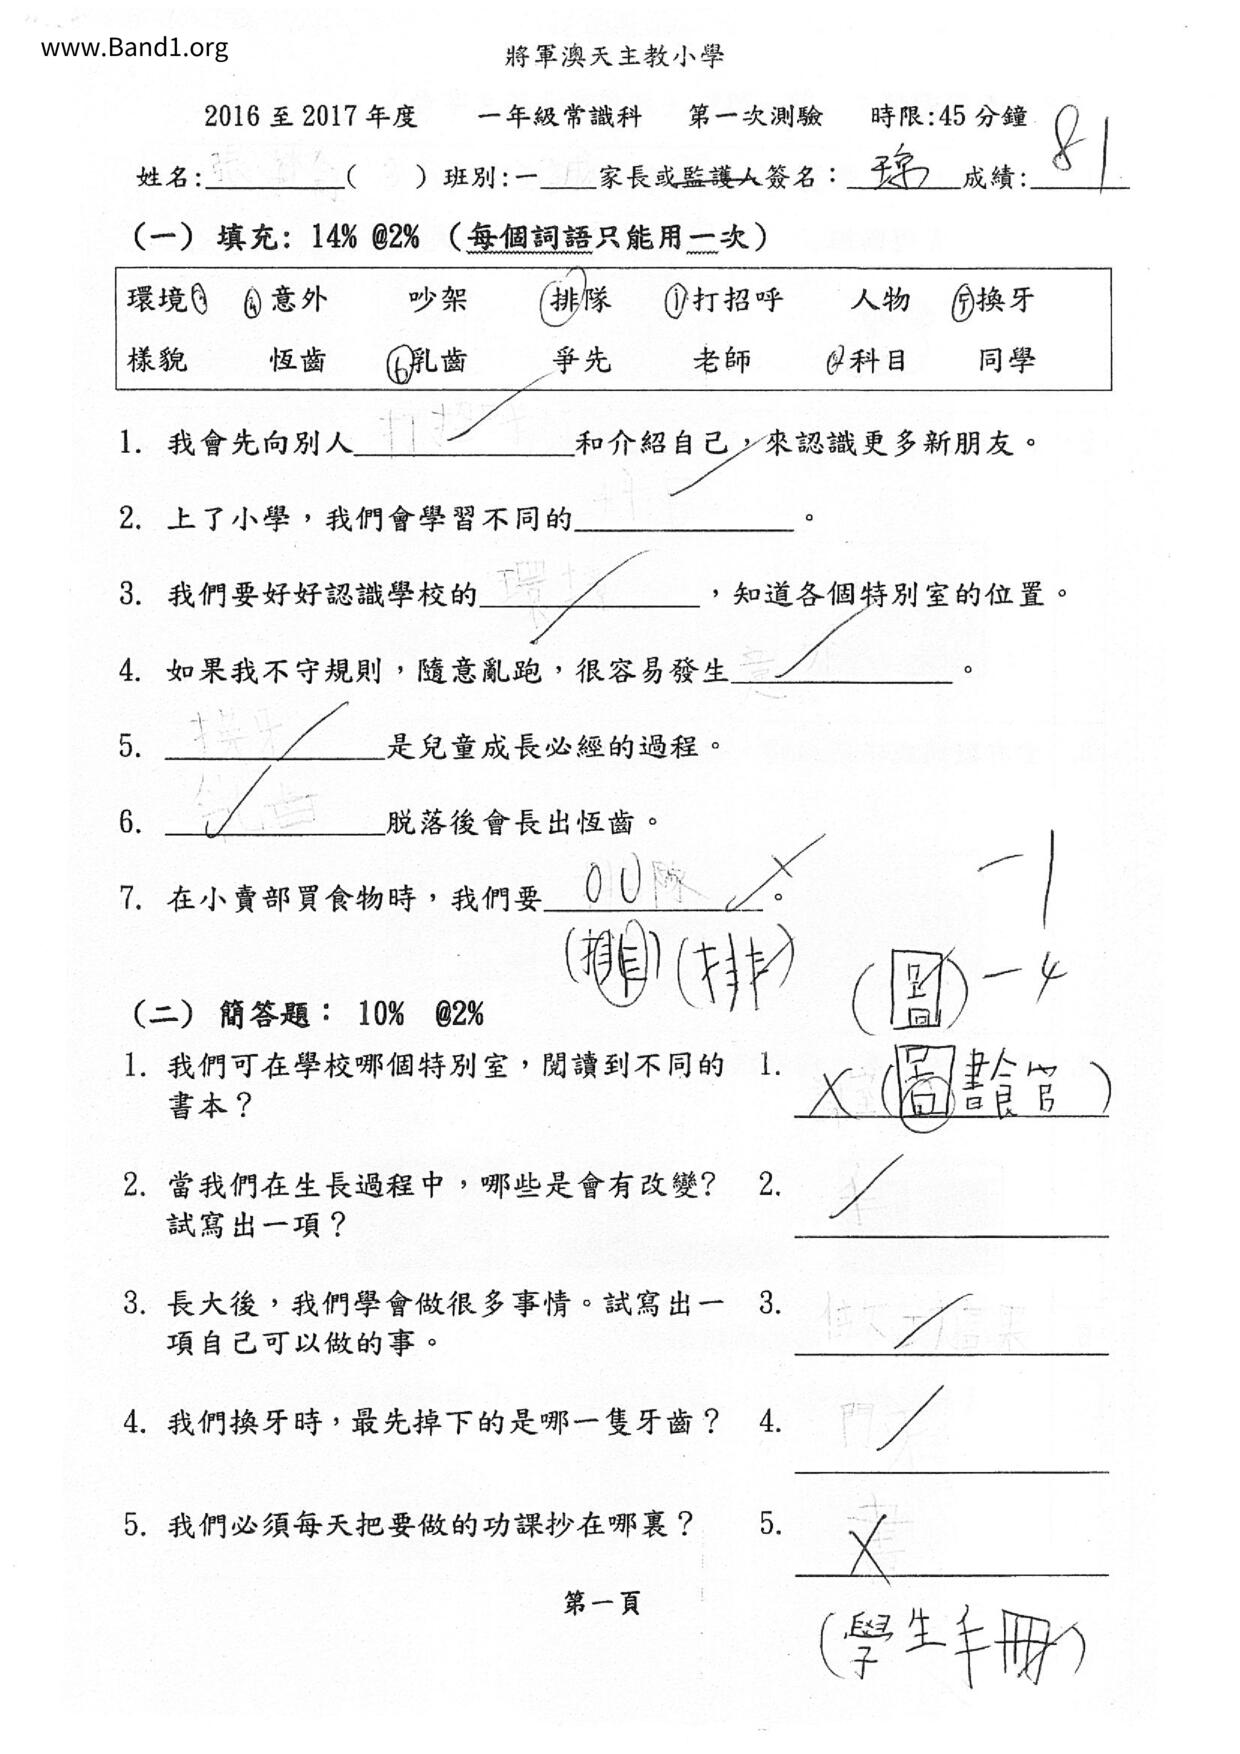 www.Band1.org
將軍澳天主教小學
2016 至 2017 年度 一年級常識科 第一次測驗 時限:45 分鐘
姓名:________( ) 班別:一____家長或監護人簽名:________成績:81
(一) 填充: 14% @2% (每個詞語只能用一次)
環境③ ④意外 吵架 排隊 ①打招呼 人物 ⑤換牙
樣貌 恆齒 ⑥乳齒 爭先 老師 ②科目 同學
1. 我會先向別人打招呼和介紹自己,來認識更多新朋友。
2. 上了小學,我們會學習不同的________。
3. 我們要好好認識學校的環境,知道各個特別室的位置。
4. 如果我不守規則,隨意亂跑,很容易發生意外。
5. 換牙是兒童成長必經的過程。
6. 乳齒脫落後會長出恆齒。
7. 在小賣部買食物時,我們要____隊。
-1
(排) (排)
(圖) -4
(二) 簡答題: 10% @2%
1. 我們可在學校哪個特別室,閱讀到不同的 1.
書本? (圖書館)
2. 當我們在生長過程中,哪些是會有改變? 2.
試寫出一項?
3. 長大後,我們學會做很多事情。試寫出一 3.
項自己可以做的事。
4. 我們換牙時,最先掉下的是哪一隻牙齒? 4. 門牙
5. 我們必須每天把要做的功課抄在哪裏? 5.
第一頁
(學生手冊)